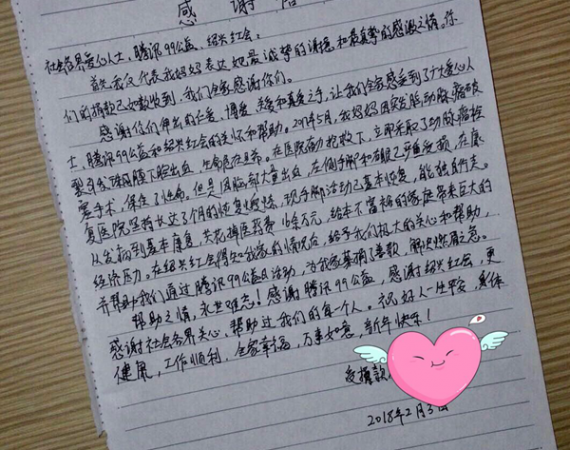 感谢信
社会各界爱心人士，腾讯99公益、绍兴红会：
首先我仅代表我妈妈表达她最诚挚的谢意和最真挚的感激之情。你
们的捐款已如数收到，我们全家感谢你们。
感谢你们伸出的仁爱、博爱、关爱和真爱之手，让我们全家感受到了广大爱心人
士、腾讯99公益和绍兴红会的关怀和帮助。2017年5月，我妈妈因突发脑动脉瘤破
裂引发蛛网膜下腔出血，生命危在旦夕。在医院奋力抢救下，立即采取了动脉瘤栓
塞手术，保住了性命。但是因脑部大量出血，左侧手脚和
复医院经药长达3个月的恢复锻炼，现手脚活动已基本恢复，能独自行走。
从发病到基本康复，共花掉医药费16余万元，给本不富裕的家庭带来巨大的
经济压力。在绍兴红会得知我家的情况后，给予我们极大的关心和帮助，
并帮助我们通过腾讯99公益日活动，为我家募捐了善款，解决燃眉之急。
帮助之情，永世难忘！感谢腾讯99公益，感谢绍兴红会，更
感谢社会各界关心、帮助过我们的每一个人。祝好人一生平安，身体
健康，工作顺利，全家幸福，万事如意，新年快乐！
受捐款
2018年2月3日